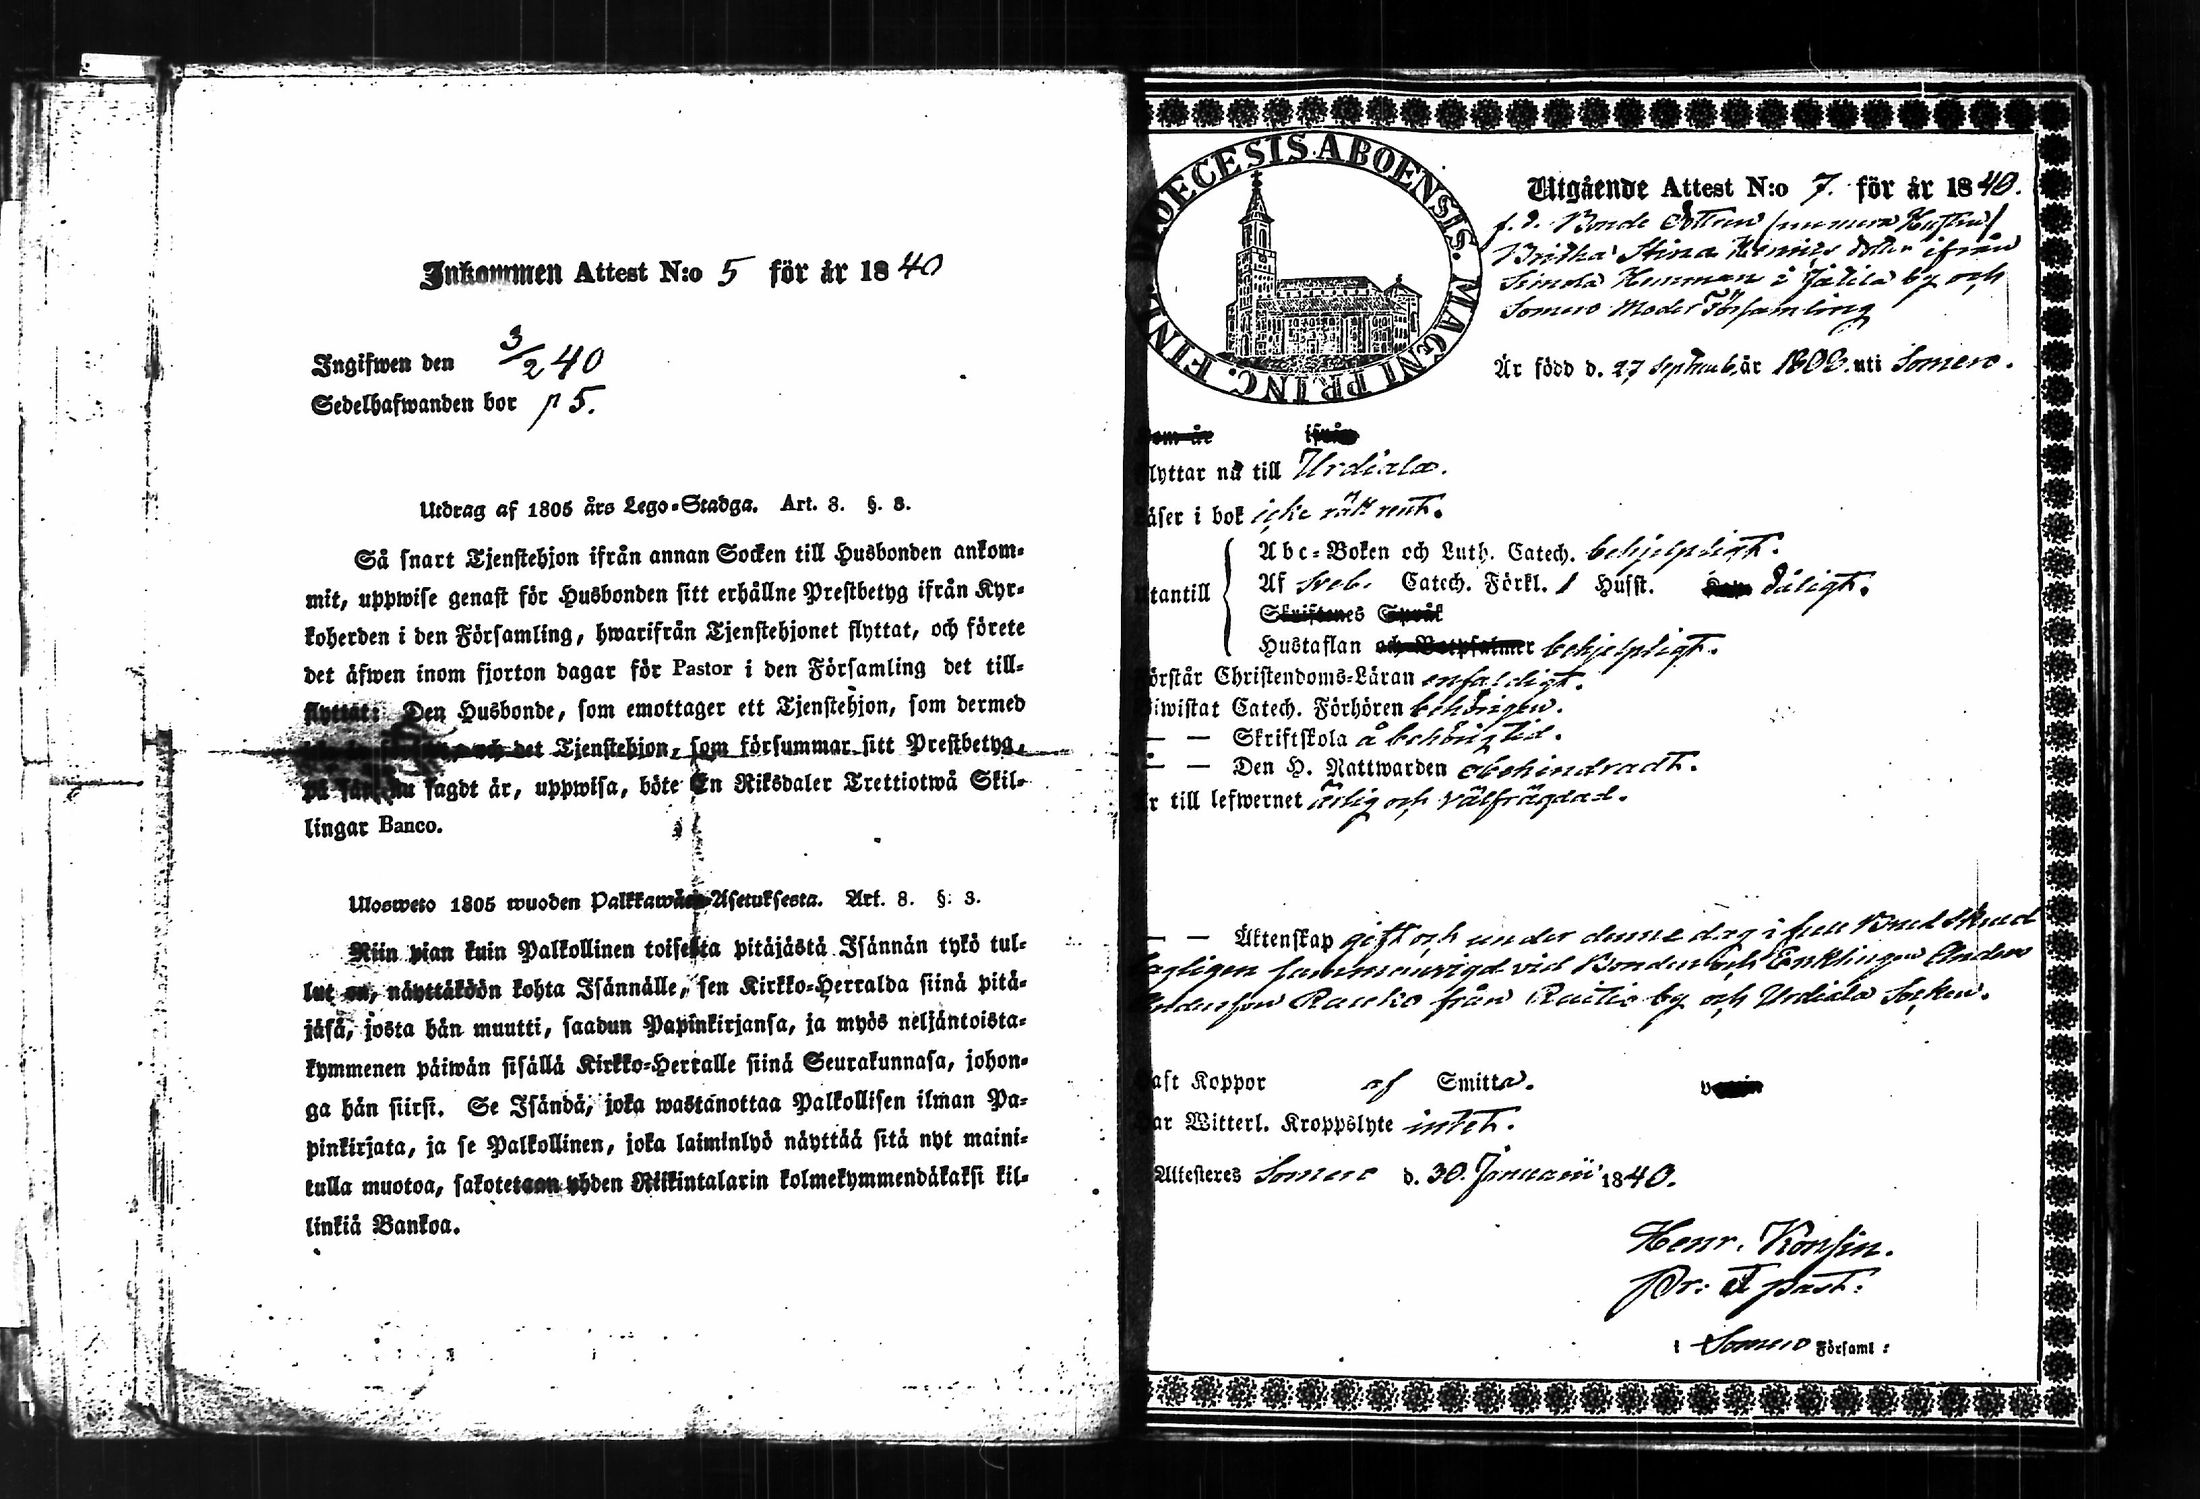 Inkommen Attest N:o 5 för år 1840
Ingifwen den 3/2 40
Sedelhafwanden bor p 5.
Utdrag af 1805 års Lego-Stadga. Art. 8. §. 3.
Så snart Tjenstehjon ifrån annan Socken till Husbonden ankom-
mit, uppwise genast för Husbonden sitt erhållne Prestbetyg ifrån Kyr-
koherden i den Församling, hwarifrån Tjenstehjonet flyttat, och förete
det äfwen inom fjorton dagar för Pastor i den Församling det till-
flyttat: Den Husbonde, som emottager ett Tjenstehjon, som dermed
och det Tjenstehjon, som försummar sitt Prestbetyg,
på sätt nu sagdt är, uppwisa, böte En Riksdaler Trettiotwå Skil-
lingar Banco.
Ulosweto 1805 wuoden Palkkawäen-Asetuksesta. Art. 8. §. 3.
Niin pian kuin Palkollinen toisesta pitäjästä Isännän tykö tul-
lut on, näyttäköön kohta Isännälle, sen Kirkko-Herralda siinä pitä-
jäsä, josta hän muutti, saadun Papinkirjansa, ja myös neljäntoista-
kymmenen päiwän sisällä Kirkko-Herralle siinä Seurakunnasa, johon-
ga hän siirsi. Se Isändä, joka wastanottaa Palkollisen ilman Pa-
pinkirjata, ja se Palkollinen, joka laiminlyö näyttää sitä nyt maini-
tulla muotoa, sakotetaan yhden Riikintalarin kolmekymmendäkaksi kil-
linkiä Bankoa.
DIOECESIS ABOENSIS. MAGNI PRINC. FINL
Utgående Attest N:o 7. för år 1840.
f. d. Bonde Dottren /numera Hustru/
Britha Stina Henrics dotter ifrån
Simola Hemman i Jatila by och
Somero Moder Församling
Är född d. 27 Septemb. år 1808. uti Somero.
Som är ifrån
flyttar nu till Urdiala.
Läser i bok icke rätt rent.
Utantill
Abc-Boken och Luth. Catech. behjelpligt.
Af Sveb. Catech. Förkl. / Hufst. dåligt.
Skriftenes Språk
Hustaflan och Botpsalmer behjelpligt.
Förstår Christendoms-Läran enfaldigt.
Biwistat Catech. Förhören behörigen.
— — Skriftskola å behörig tid.
— — Den H. Nattwarden obehindradt.
Är till lefwernet ärlig och välfrägdad.
— — Äktenskap gift och under denne dag i full Brud Skrud
lagligen sammanvigd vid Bonden och Enklingen Anders
Andersson Rauko från Rautio by och Urdiala Socken.
Haft Koppor af Smitta.
Har Witterl. Kroppslyte intet.
Attesteres Somero d. 30. Januarii 1840.
Henr. Konsin.
Pr: et past:
i Somero Församl: